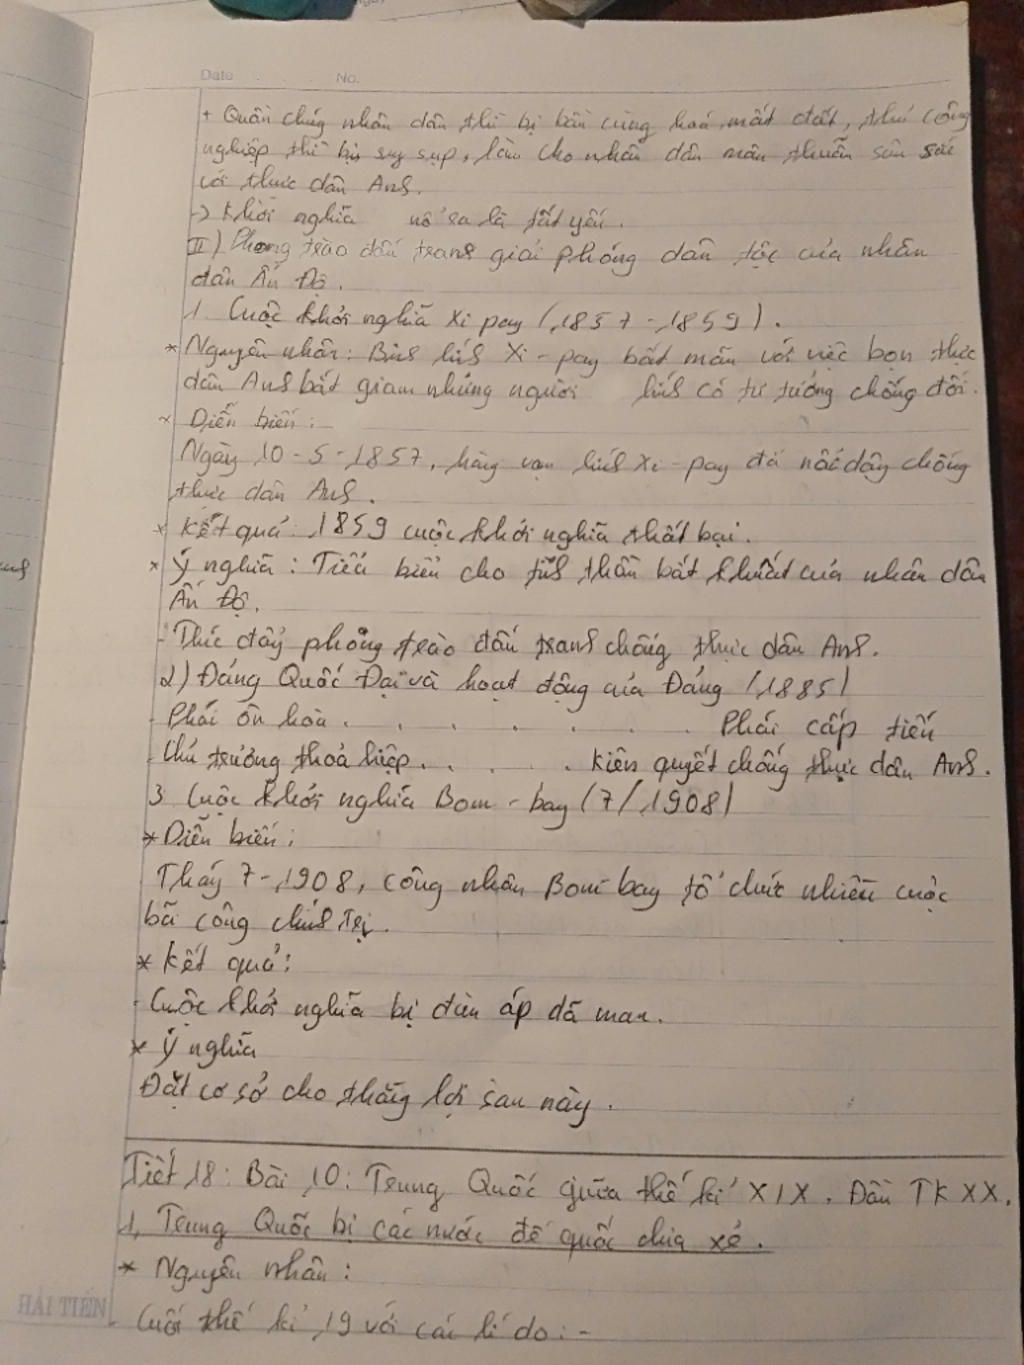 Date No.
+ Quần chúng nhân dân thì bị bần cùng hoá, mất đất, thủ công
nghiệp thì bị suy sụp, làm cho nhân dân mâu thuẫn sâu sắc
với thực dân Anh.
-> Khởi nghĩa nổ ra là tất yếu.
II) Phong trào đấu tranh giải phóng dân tộc của nhân
dân Ấn Độ.
1. Cuộc khởi nghĩa Xi pay (1857-1859).
* Nguyên nhân: Binh lính Xi-pay bất mãn với việc bọn thực
dân Anh bắt giam những người lính có tư tưởng chống đối.
* Diễn biến:
Ngày 10-5-1857, hàng vạn lính Xi-pay đã nổi dậy chống
thực dân Anh.
* Kết quả: 1859 cuộc khởi nghĩa thất bại.
* Ý nghĩa: Tiêu biểu cho tinh thần bất khuất của nhân dân
Ấn Độ.
- Thúc đẩy phong trào đấu tranh chống thực dân Anh.
2) Đảng Quốc Đại và hoạt động của Đảng (1885)
- Phái ôn hoà . . . . . . Phái cấp tiến
Chủ trương thoả hiệp. . . . . Kiên quyết chống thực dân Anh.
3 Cuộc khởi nghĩa Bom-bay (7/1908)
* Diễn biến:
Tháng 7-1908, công nhân Bom bay tổ chức nhiều cuộc
bãi công chính trị.
* Kết quả:
- Cuộc khởi nghĩa bị đàn áp dã man.
* Ý nghĩa
Đặt cơ sở cho thắng lợi sau này.
Tiết 18: Bài 10: Trung Quốc giữa thế kỉ XIX. Đầu TK XX.
1, Trung Quốc bị các nước đế quốc chia xẻ.
* Nguyên nhân:
HẢI TIẾN
Cuối thế kỉ 19 với các lí do: -